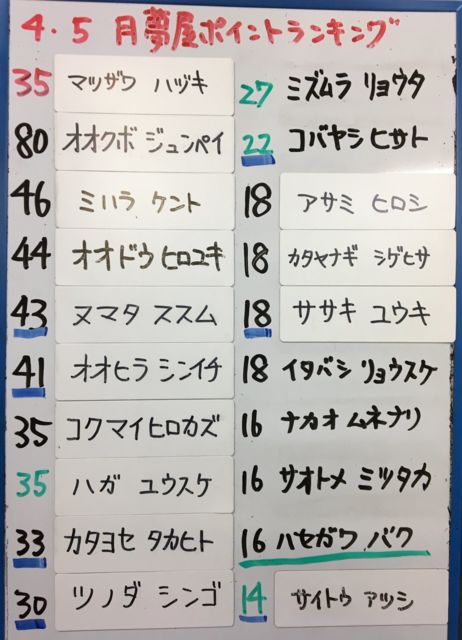 4.5月夢屋ポイントランキング
35 マツザワ ハヅキ
80 オオクボ ジュンペイ
46 ミハラ ケント
44 オオドウ ヒロユキ
43 ヌマタ ススム
41 オオヒラ シンイチ
35 コクマイ ヒロカズ
35 ハガ ユウスケ
33 カタヨセ タカヒト
30 ツノダ シンゴ
27 ミズムラ リョウタ
22 コバヤシ ヒサト
18 アサミ ヒロシ
18 カタヤナギ シゲヒサ
18 ササキ ユウキ
18 イタバシ リョウスケ
16 ナカオ ムネナリ
16 サオトメ ミツタカ
16 ハセガワ バク
14 サイトウ アツシ